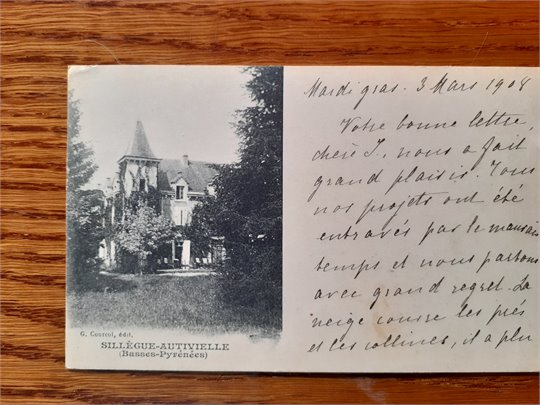 Mardi gras. 3 Mars 1908
Votre bonne lettre,
chère J, nous a fait
grand plaisir. Tous
nos projets ont été
entravés par le mauvais
temps et nous partons
avec grand regret. La
neige couvre les prés
et les collines, il a plu
G. Courcol, édit.
SILLÈGUE-AUTIVIELLE
(Basses-Pyrénées)